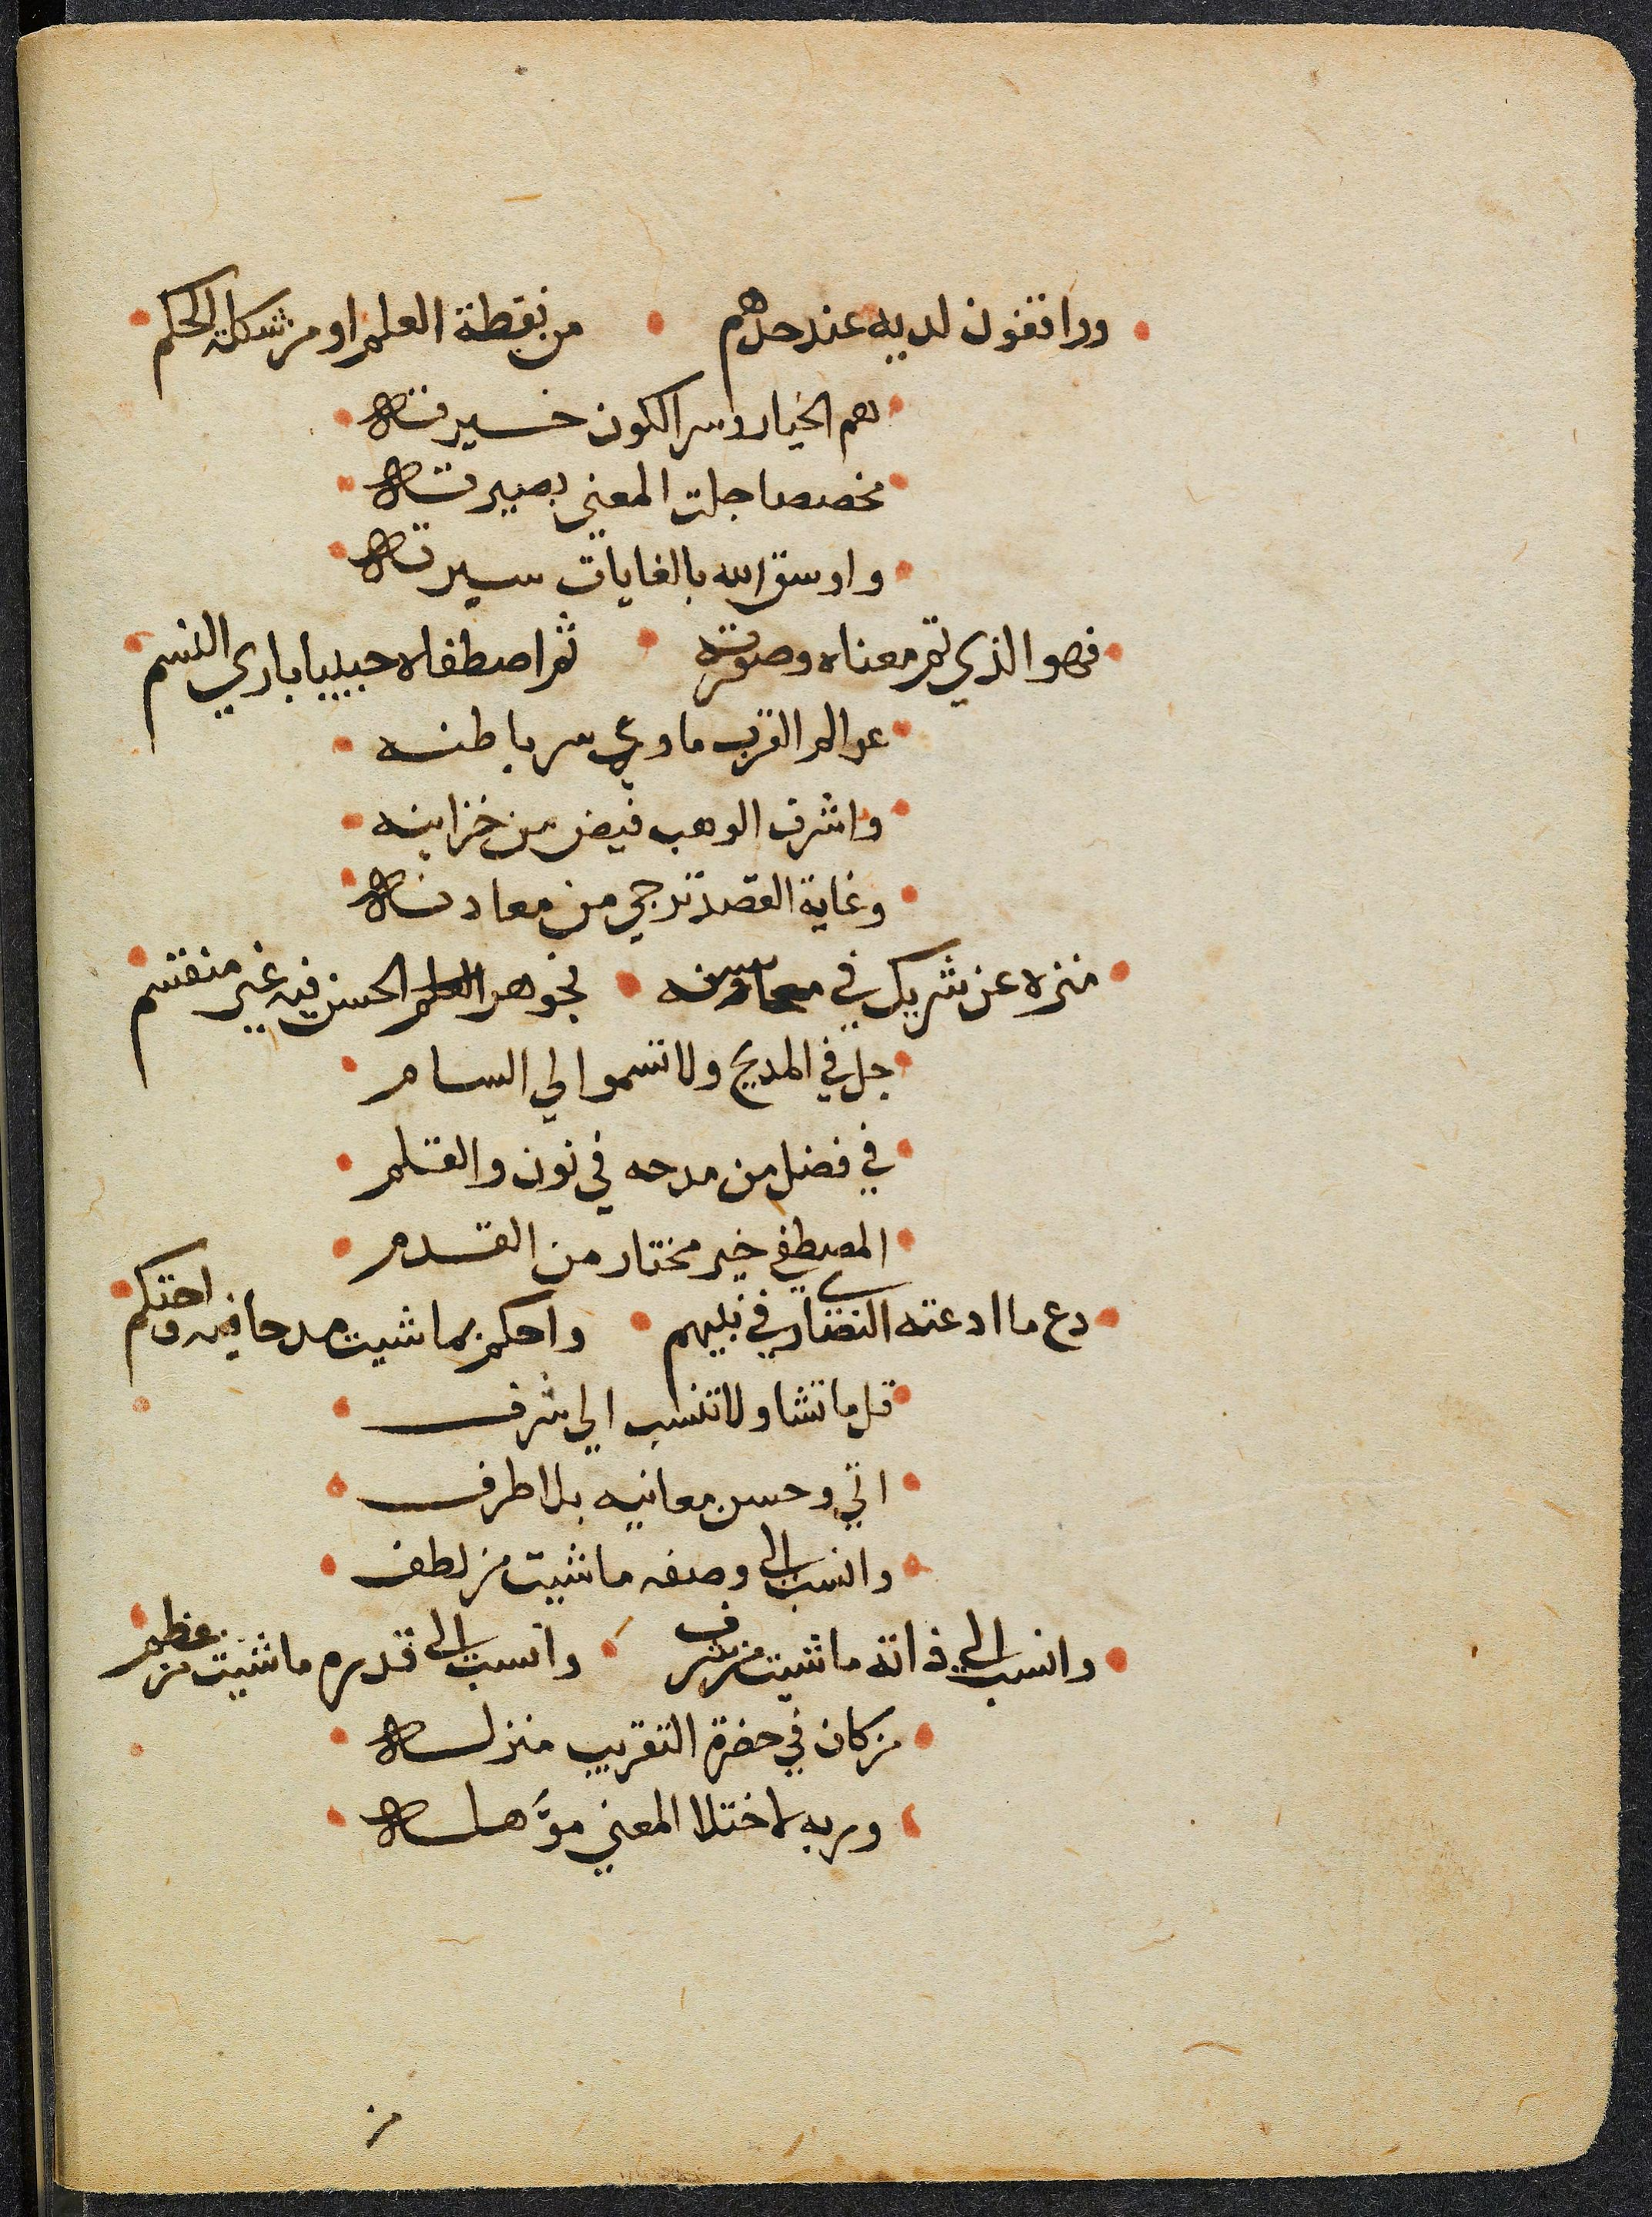 وراقفون لديه عند حدهم من نقطة العلم او من شكلة الحكم
هم الخيار وسر الكون خسيرته
مخصصا جلت المعني بصيرته
واوسق الله بالغايات سيرته
فهو الذي تم معناه وصورته ثم اصطفاه حبيبا باري النسم
عوالم القرب ماوي سر باطنه
واشرف الوهب فيض من خزاينه
وغاية القصد ترجي من معادنه
منزه عن شريك في محاسنه فجوهر الحسن فيه غير منقسم
جل في المديح ولا تسموا لي السام
في فضل من مدحه في نون والقلم
المصطفي خير مختار من القدم
دع ما ادعته النصاري في نبيهم واحكم بما شيت مدحا فيه واحتكم
قل ما تشا ولا تنسب الي شرف
اتي وحسن معانيه بلا طرف
وانسب الي وصفه ما شيت من لطف
وانسب الي ذاته ما شيت من شرف وانسب الي قدره ما شيت من عظم
من كان في حضرة التقريب منزله
وربه لاختلا المعني موَّهله
من